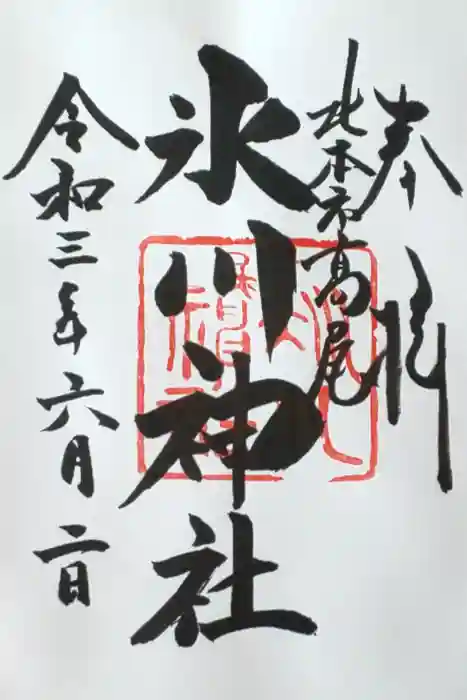 奉拝
北本市高尾
氷川神社
令和三年六月二日